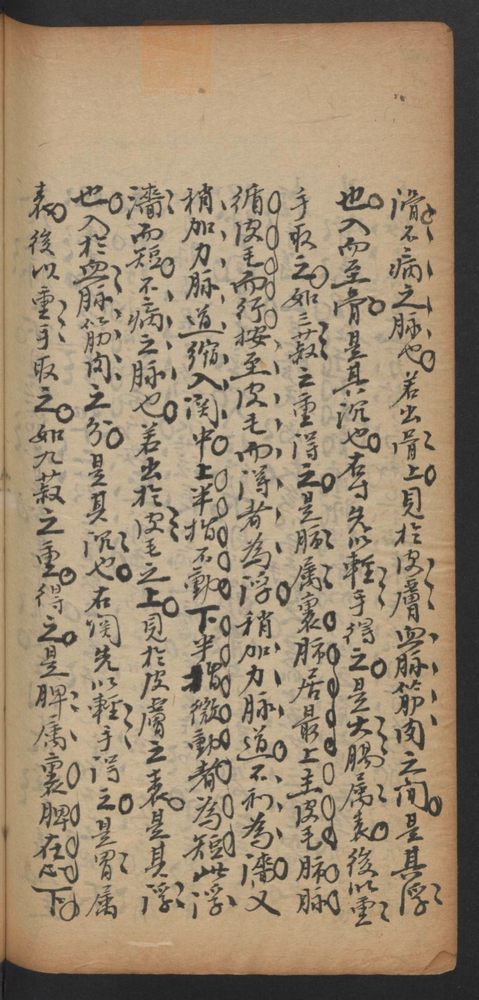 滑不病之脉也若出骨上見於皮膚血脉筋肉之间是其浮
也入而至骨是其沉也右寸先以輕手得之是大腸属表後以重
手取之如三菽之重得之是肺属裏肺居最上主皮毛肺脉
循皮毛而行按至皮毛而得者為浮稍加力脉道不利為濇又
稍加力脉道縮入関中上半指不動下半指微動者為短此浮
濇而短不病之脉也若出於皮毛之上見於皮膚之表是其浮
也入於血脉筋肉之分是其沉也右関先以輕手得之是胃属
表後以重手取之如九菽之重得之是脾属裏脾在心下